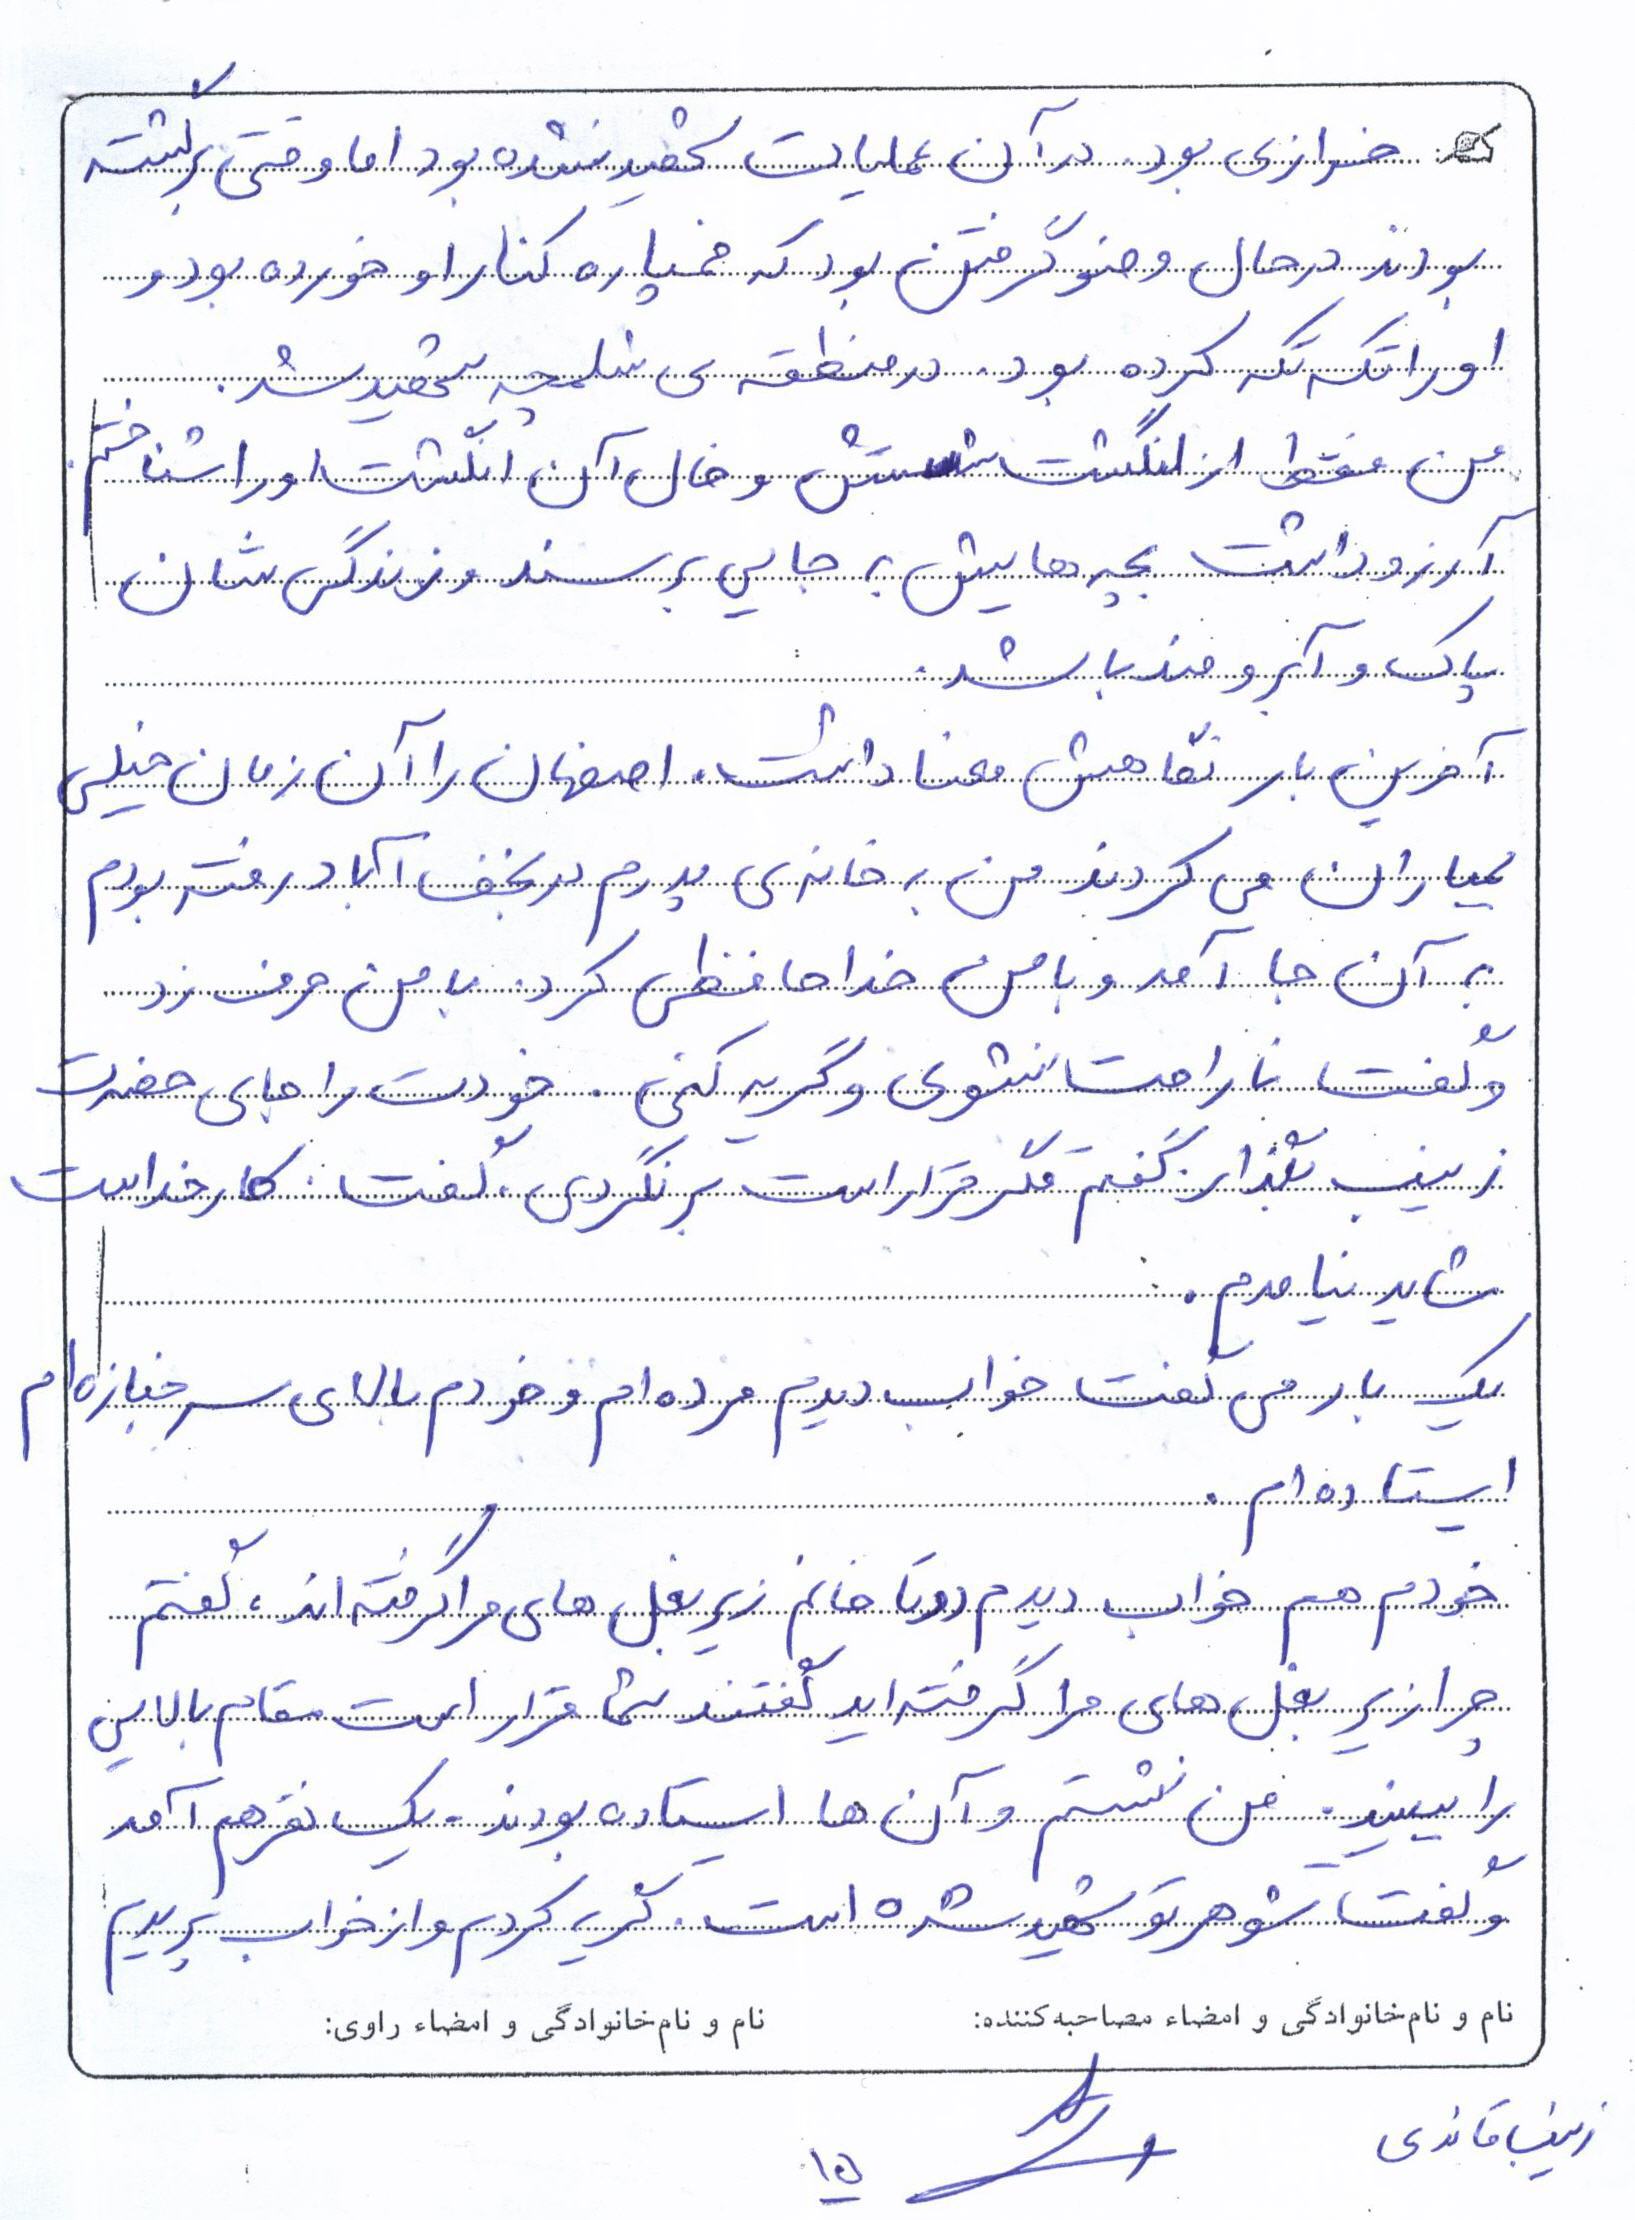 خرازی بود. در آن عملیات شهید نشده بود اما وقتی برگشته
بودند در حال وضو گرفتن بود که خمپاره کنار او خورده بود و
او را تکه تکه کرده بود. در منطقه ی شلمچه شهید شد.
من فقط از انگشت شستش و خال آن انگشت او را شناختم.
آرزو داشت بچه هایش به جایی برسند و زندگی شان
پاک و آبرومند باشد.
آخرین بار نگاهش معنا داشت. اصفهان را آن زمان خیلی
بمباران می کردند من به خانه ی پدرم در نجف آباد رفته بودم
به آن جا آمد و با من خداحافظی کرد. با من حرف زد
و گفت ناراحت نشوی و گریه کنی. خودت را جای حضرت
زینب بگذار. گفتم مگر قرار است برنگردی، گفت: کار خداست
شاید نیامدم.
یک بار می گفت خواب دیدم مرده ام و خودم بالای سر جنازه ام
ایستاده ام.
خودم هم خواب دیدم دوتا خانم زیر بغل های مرا گرفته اند، گفتم
چرا زیر بغل های مرا گرفته اید گفتند شما قرار است مقام بالایی
را ببینید. من نشستم و آن ها ایستاده بودند. یک نفر هم آمد
و گفت شوهر تو شهید شده است. گریه کردم و از خواب پریدم
نام و نام‌خانوادگی و امضاء مصاحبه‌کننده: نام و نام‌خانوادگی و امضاء راوی:
زینب قائدی
۱۵